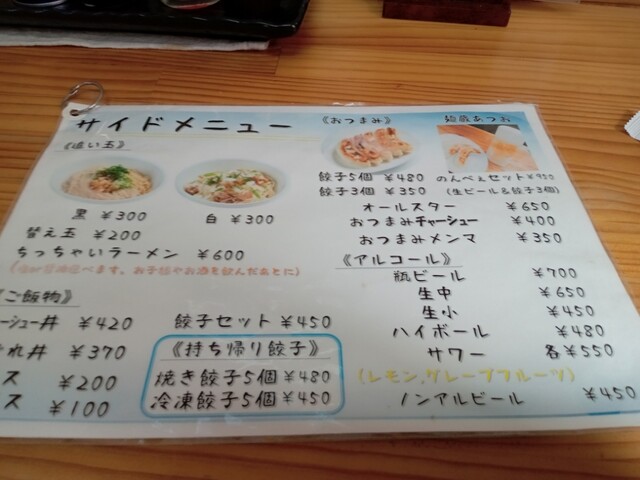 サイドメニュー
《追い玉》
黒 ¥300
白 ¥300
替え玉 ¥200
ちっちゃいラーメン ¥600
べます。お子様やお酒を飲んだあとに)
《ご飯物》
ーシュー丼 ¥420
れ丼 ¥370
ス ¥200
ス ¥100
餃子セット ¥450
《持ち帰り餃子》
焼き餃子5個 ¥480
冷凍餃子5個 ¥450
《おつまみ》
麺蔵あつお
餃子5個 ¥480
のんべぇセット ¥950
餃子3個 ¥350
(生ビール&餃子3個)
オールスター ¥650
おつまみチャーシュー ¥400
おつまみメンマ ¥350
《アルコール》
瓶ビール ¥700
生中 ¥650
生小 ¥450
ハイボール ¥480
サワー 各¥550
(レモン,グレープフルーツ)
ノンアルビール ¥450